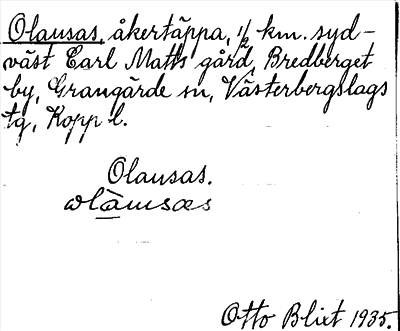 Olausas, åkertäppa, 1/2 km. syd-
väst Earl Matts gård, Bredberget
by, Grangärde sn, Västerbergslags
tg, Kopp l.
Olausas.
Otto Blixt 1935.